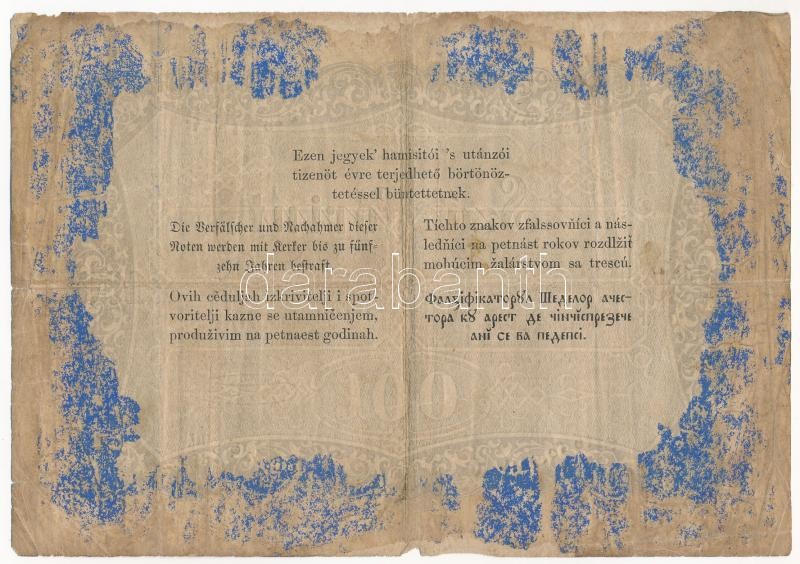 Ezen jegyek' hamisitói 's utánzói
tizenöt évre terjedhető börtönöz-
tetéssel büntettetnek.
Die Verfälscher und Nachahmer dieser
Noten werden mit Kerker bis zu fünf-
zehn Jahren bestraft.
Ovih cĕduljah izkrivitelji i spot-
voritelji kazne se utamničenjem,
produživim na petnaest godinah.
Tíchto znakov zfalssovňíci a nás-
ledňíci na petnást rokov rozdlžiť
mohúcim žalárstvom sa trescú.
Фалзіфікаторꙋл Шеделор ачес-
тора кꙋ арест де чінчіспрезече
ані се ва педепсі.
100
darabanth